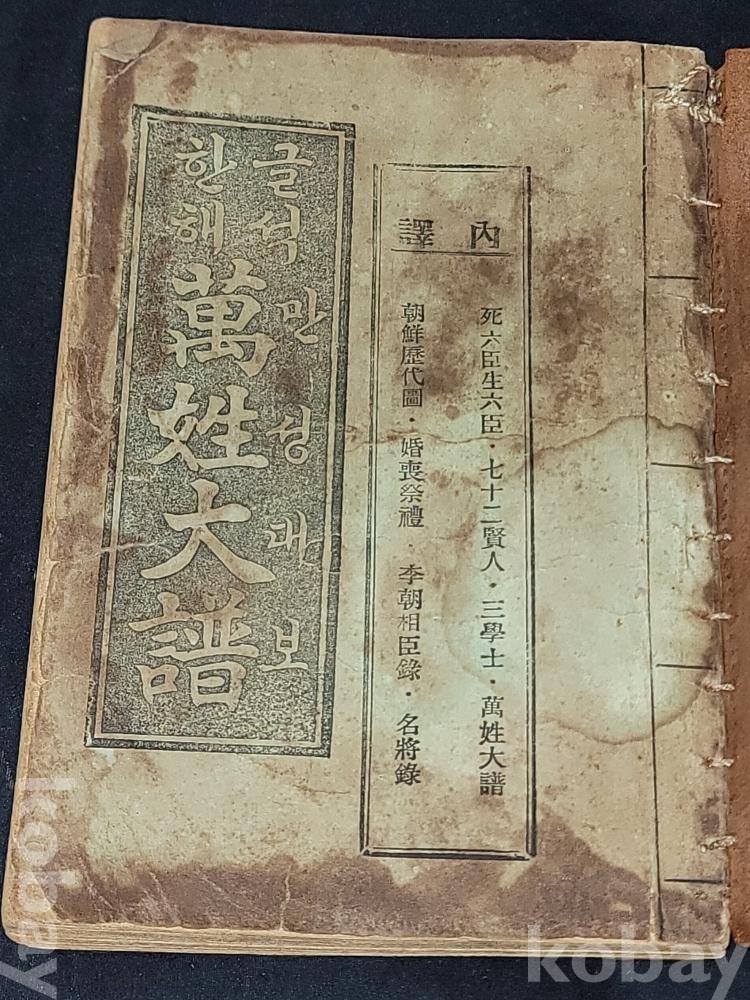 한글
해석
萬姓大譜
만성대보
內譯
死六臣生六臣・七十二賢人・三學士・萬姓大譜
朝鮮歷代圖・婚喪祭禮・李朝相臣錄・名將錄
kobay
kobay